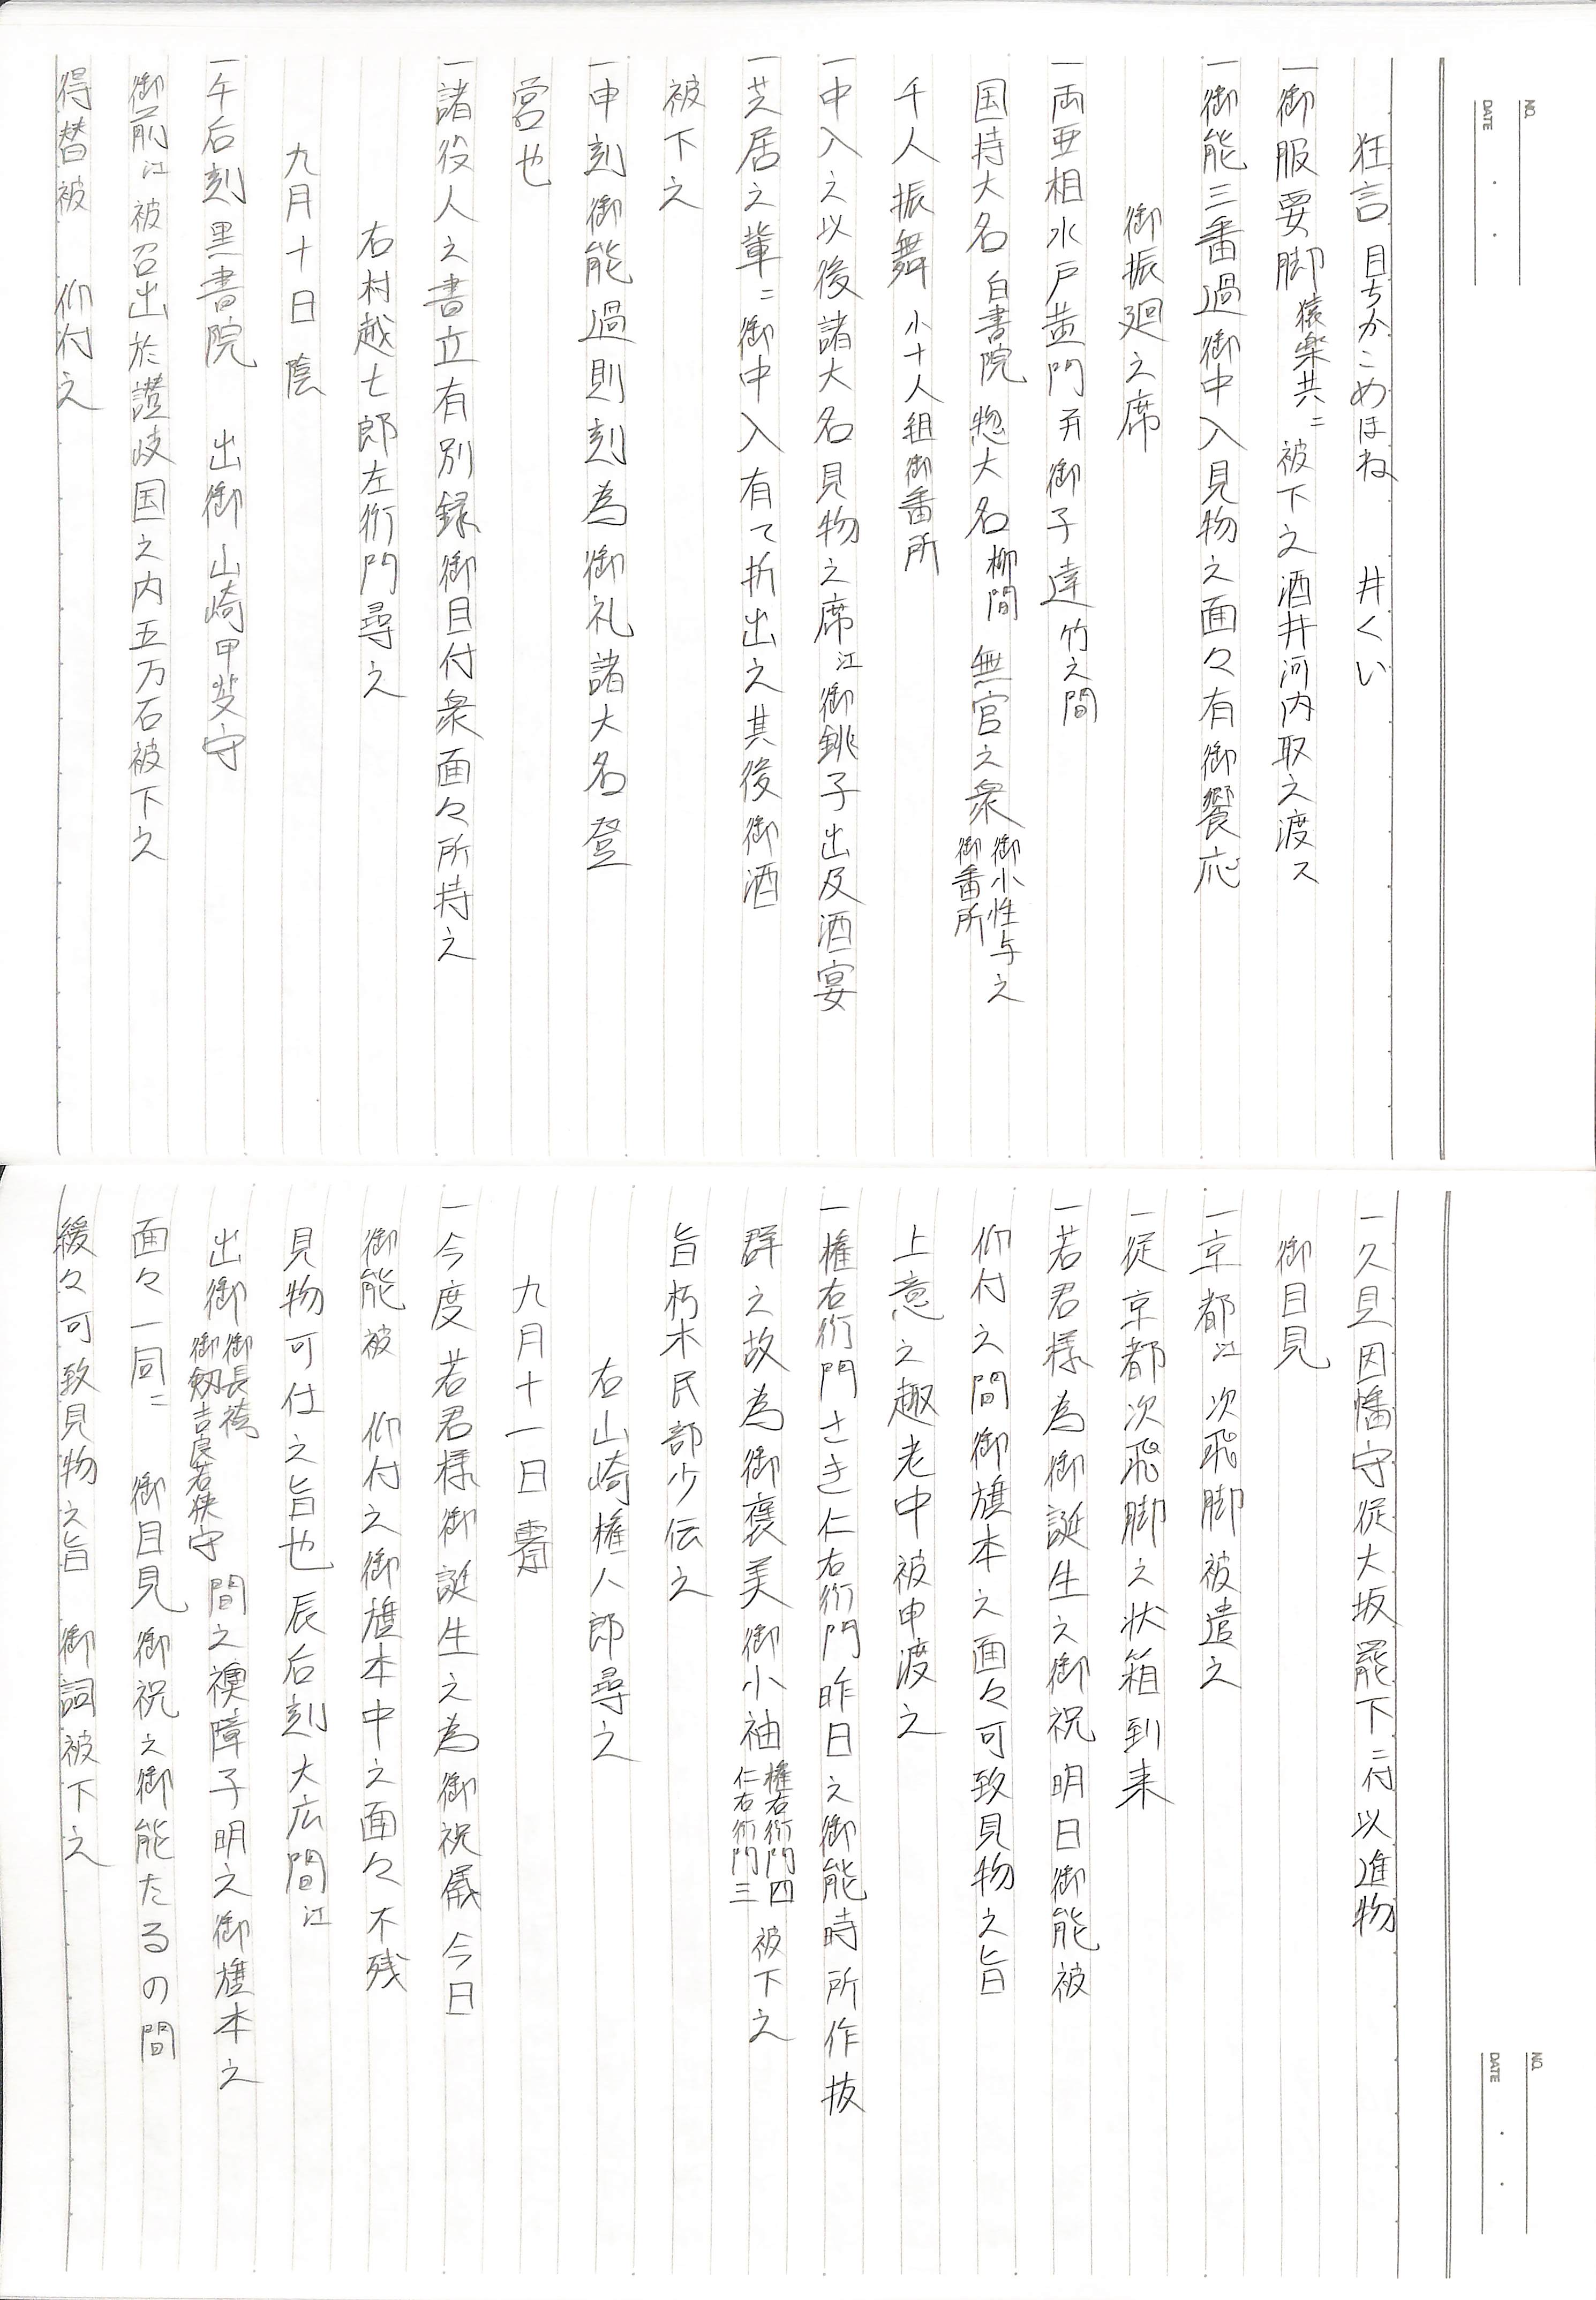 NO.
DATE
狂言 目ちかこめほね 井くい
一御服要脚猿楽共ニ被下之酒井河内取之渡ス
一御能三番過御中入見物之面々有御饗応
御振廻之席
一両亜相水戸黄門并御子達竹之間
国持大名白書院 惣大名柳間 無官之衆御小性与之御番所
千人振舞 小十人組御番所
一中入之以後諸大名見物之席江御銚子出及酒宴
一芝居之輩ニ御中入有て折出之其後御酒
被下之
一申刻御能過則刻為御礼諸大名登
営也
一諸役人之書立有別録御目付衆面々所持之
右村越七郎左衛門尋之
九月十日 陰
一午后刻黒書院 出御山崎甲斐守
御前江被召出於讃岐国之内五万石被下之
得替被 仰付之
NO.
DATE
一久貝因幡守従大坂罷下ニ付以進物
御目見
一京都江次飛脚被遣之
一従京都次飛脚之状箱到来
一若君様為御誕生之御祝明日御能被
仰付之間御旗本之面々可致見物之旨
上意之趣老中被申渡之
一権右衛門さき仁右衛門昨日之御能時所作抜
群之故為御褒美御小袖権右衛門四仁右衛門三被下之
旨朽木民部少伝之
右山崎権八郎尋之
九月十一日 霽
一今度若君様御誕生之為御祝儀今日
御能被 仰付之御旗本中之面々不残
見物可仕之旨也辰后刻大広間江
出御御長袴御剱吉良若狭守間之襖障子明之御旗本之
面々一同ニ 御目見御祝之御能たるの間
緩々可致見物之旨 御詞被下之